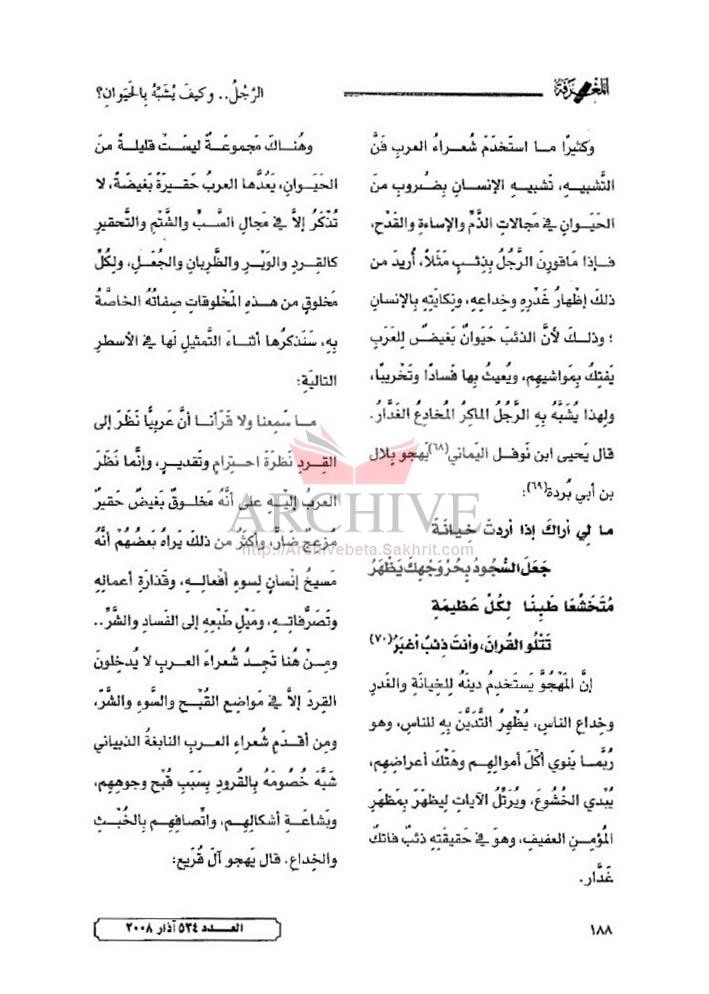 المعرفة
الرَّجُلُ.. وكيفَ يُشَبَّهُ بِالحَيَوانِ؟
وكثيرًا ما استَخدَمَ شُعراءُ العربِ فَنَّ
التَّشبيهِ، تَشبيهِ الإنسانِ بِضُروبٍ منَ
الحَيَوانِ في مَجالاتِ الذَّمِّ والإساءةِ والقَدْحِ،
فإذا ماقورِنَ الرَّجُلُ بِذِئبٍ مَثَلاً، أُريدَ من
ذلكَ إظهارُ غَدْرِهِ وخِداعِهِ، ونِكايَتِهِ بِالإنسانِ
؛ وذلكَ لأنَّ الذئبَ حَيَوانٌ بَغيضٌ لِلعَرَبِ
يَفتِكُ بِمَواشيهِم، ويُعيثُ بِها فَسادًا وتَخريبًا،
ولِهذا يُشَبَّهُ بِهِ الرَّجُلُ الماكِرُ المُخادِعُ الغَدَّارُ.
قال يَحيى ابن نَوفل اليَماني(٦٨)يَهجو بِلال
بن أبي بُردة(٦٩):
ما لي أراكَ إذا أردتَ خِيانَةً
جَعَلَ السُّجُودُ بِحُرِّ وَجْهِكَ يَظْهَرُ
مُتَخَشِّعًا طَبِنًا لِكُلِّ عَظيمَةٍ
تَتْلُو القُرانَ، وأنتَ ذِئبٌ أغبَرُ(٧٠)
إنَّ المَهْجُوَّ يَستَخدِمُ دينَهُ لِلخِيانَةِ والغَدرِ
وخِداعِ الناسِ، يُظْهِرُ التَّدَيُّنَ بِهِ لِلناسِ، وهو
رُبَّما يَنوي أكْلَ أموالِهِم وهَتْكَ أعراضِهِم،
يُبْدي الخُشُوعَ، ويُرَتِّلُ الآياتِ لِيظهَرَ بِمَظهَرِ
المُؤمِنِ العفيفِ، وهوَ في حَقيقَتِهِ ذئبٌ فاتكٌ
غَدَّار.
وهُناكَ مَجموعَةٌ ليسَتْ قليلةً منَ
الحَيَوانِ، يَعُدُّها العربُ حَقيرَةً بَغيضَةً، لا
تُذْكَرُ إلاَّ في مَجالِ السَّبِّ والشَّتْمِ والتَّحقيرِ
كالقِردِ والوَبْرِ والظَّرِبانِ والجُعَلِ، ولِكُلِّ
مَخلوقٍ من هذِهِ المَخلوقاتِ صِفاتُهُ الخاصَّةُ
بِهِ، سَنَذكرُها أثناءَ التَّمثيلِ لَها في الأسطرِ
التاليَةِ:
ما سَمِعنا ولا قَرَأنا أنَّ عَربيًّا نَظَرَ إلى
القِردِ نَظرَةَ احتِرامٍ وتَقديرٍ، وإنَّما نَظَرَ
العربُ إلَيْهِ على أنَّهُ مَخلوقٌ بَغيضٌ حَقيرٌ
مُزعِجٌ ضَارٌّ، وأكثَرُ من ذلكَ يَراهُ بَعضُهُمْ أنَّهُ
مَسيخُ إنْسانٍ لِسوءِ أفْعالِهِ، وقَذارَةِ أعمالِهِ
وتَصَرُّفاتِهِ، ومَيْلِ طَبْعِهِ إلى الفَسادِ والشَّرِّ..
ومِنْ هُنا تَجِدُ شُعراءَ العربِ لا يُدخِلونَ
القِردَ إلاَّ في مَواضِعِ القُبْحِ والسَّوءِ والشَّرِّ،
ومِن أقدَمِ شُعراءِ العربِ النابغةُ الذبياني
شَبَّهَ خُصُومَهُ بِالقُرودِ بِسَبَبِ قُبْحِ وجوهِهِم،
وبَشاعَةِ أشكالِهِم، واتِّصافِهِم بِالخُبْثِ
والخِداعِ. قال يَهجو آلَ قُرَيع:
ARCHIVE
http://Archivebeta.Sakhrit.com
١٨٨
العـدد ٥٣٤ آذار ٢٠٠٨